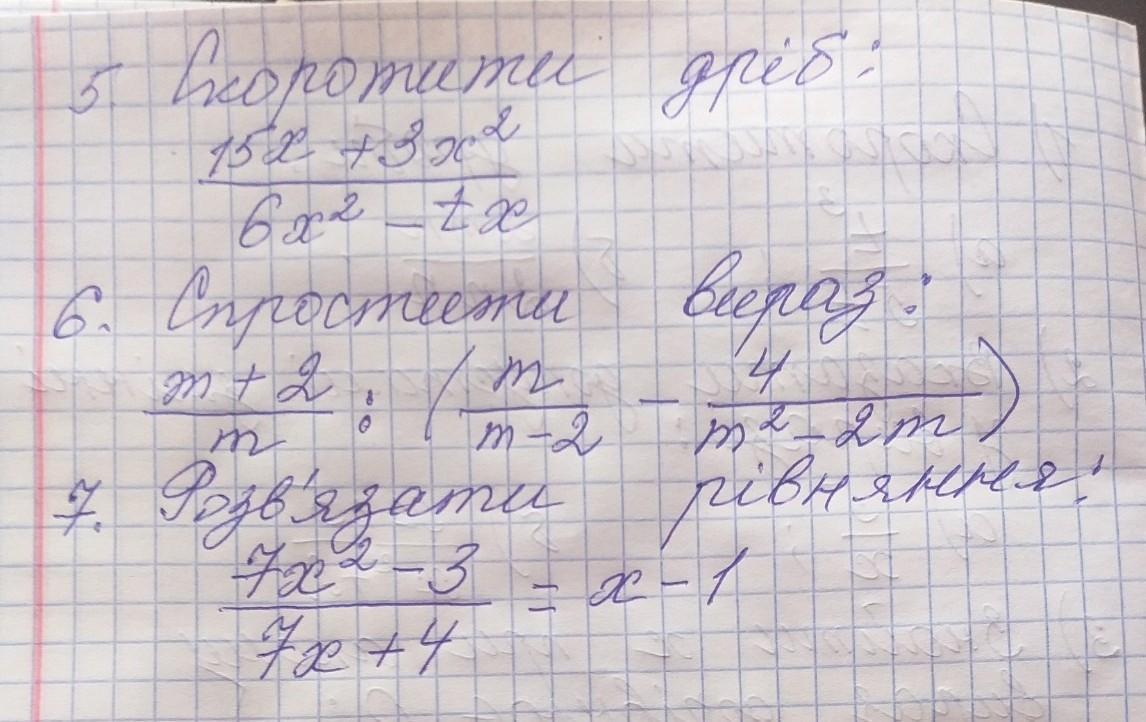 5. Скоротити дріб:
15x + 3x²
6x² - 7x
6. Спростити вираз:
m + 2 / m : ( m / m-2 - 4 / m² - 2m )
7. Розв'язати рівняння:
7x² - 3 / 7x + 4 = x - 1